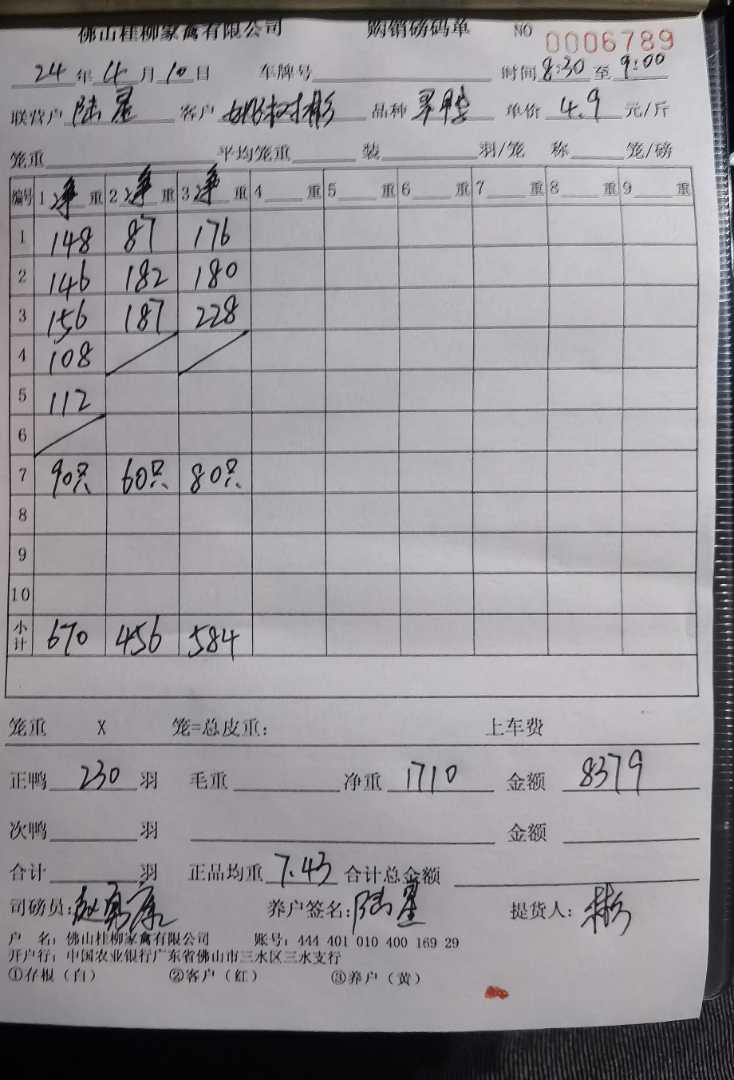 佛山桂柳家禽有限公司 购销磅码单 NO 0006789
24年4月10日 车牌号 时间8:30至9:00
联营户 陆星 客户 彬 品种 单价 4.9 元/斤
笼重 平均笼重 装 羽/笼 称 笼/磅
编号 1净重 2净重 3净重 4 重 5 重 6 重 7 重 8 重 9 重
1 148 87 176
2 146 182 180
3 156 187 228
4 108
5 112
6
7 90只 60只 80只
8
9
10
小计 670 456 584
笼重 X 笼=总皮重: 上车费
正鸭 230 羽 毛重 净重 1710 金额 8379
次鸭 羽 金额
合计 羽 正品均重 7.43 合计总金额
司磅员: 养户签名: 陆星 提货人: 彬
户 名: 佛山桂柳家禽有限公司 账号: 444 401 010 400 169 29
开户行: 中国农业银行广东省佛山市三水区三水支行
①存根(白) ②客户(红) ③养户(黄)